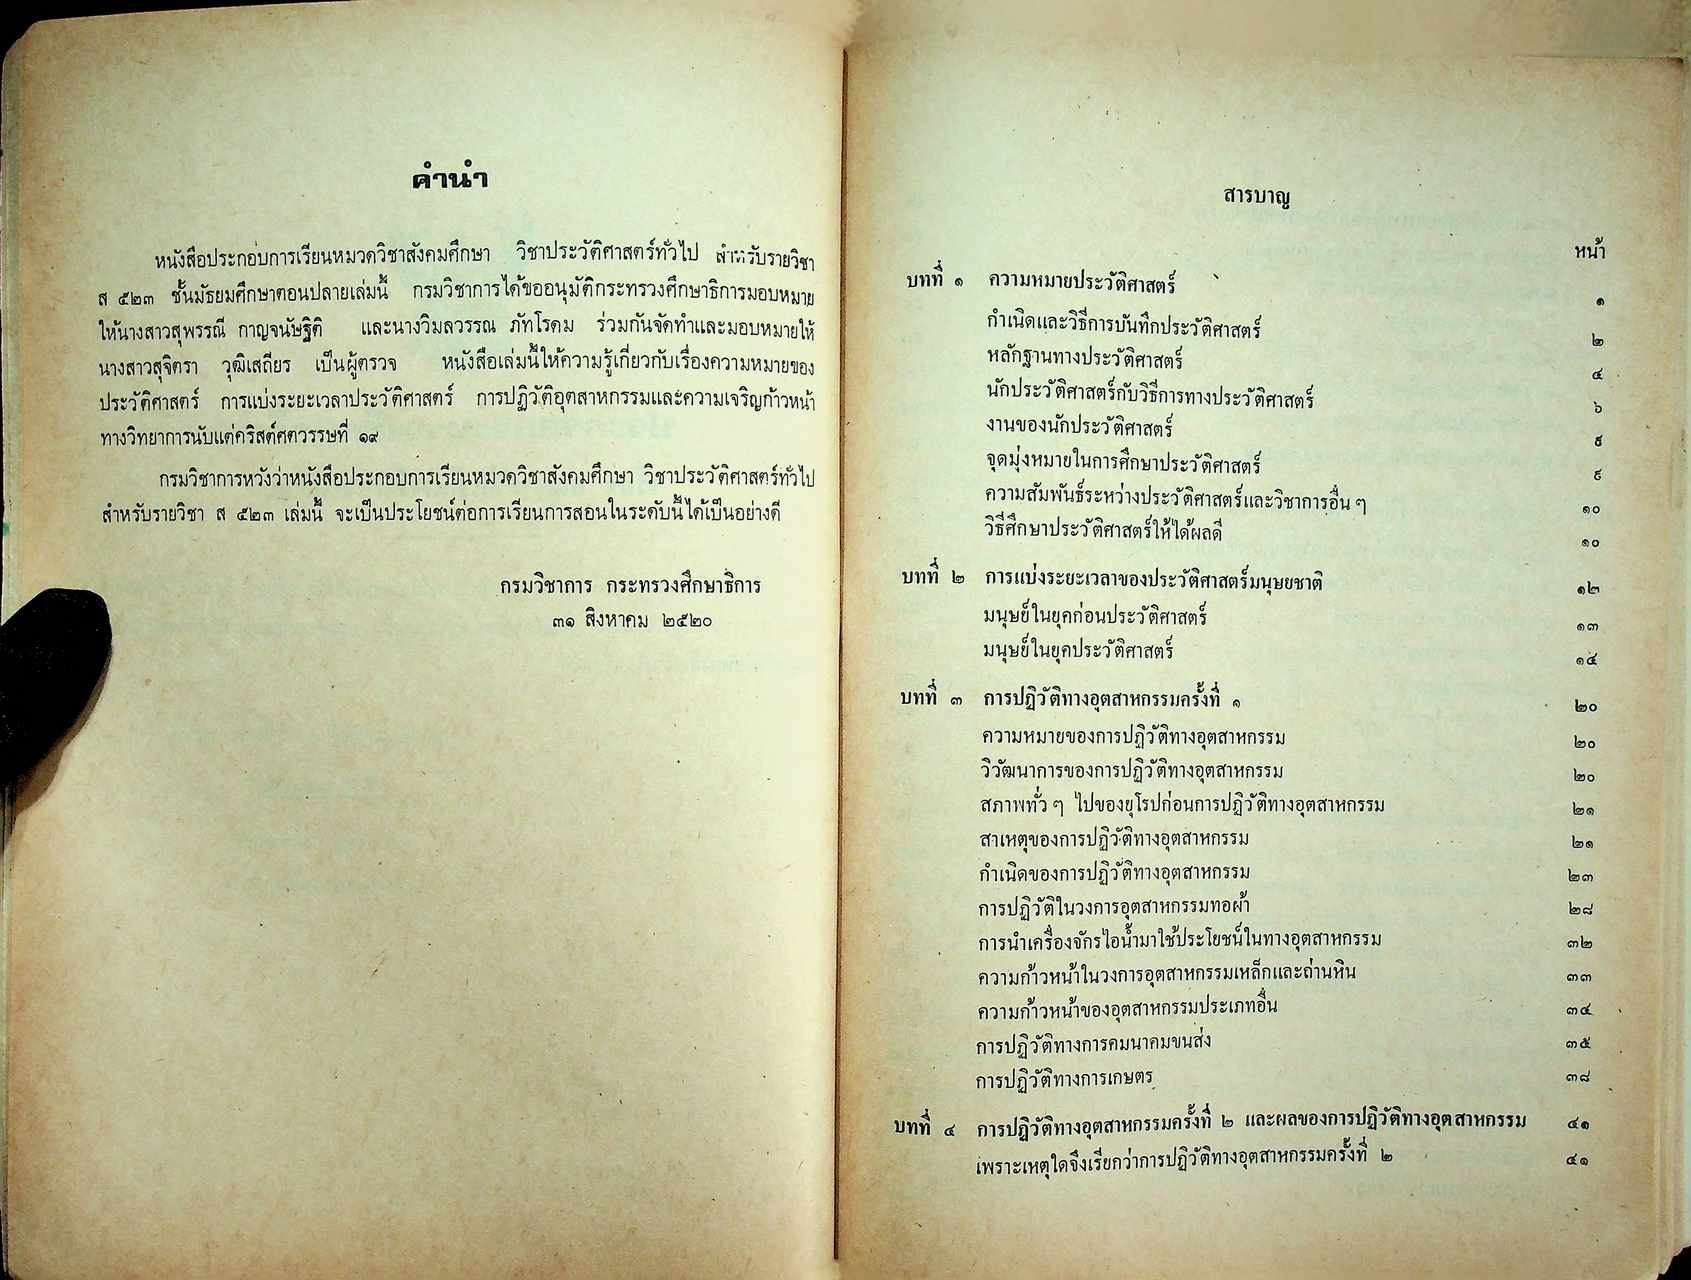 คำนำ
หนังสือประกอบการเรียนหมวดวิชาสังคมศึกษา วิชาประวัติศาสตร์ทั่วไป สำหรับรายวิชา
ส ๕๒๓ ชั้นมัธยมศึกษาตอนปลายเล่มนี้ กรมวิชาการได้ขออนุมัติกระทรวงศึกษาธิการมอบหมาย
ให้นางสาวสุพรรณี กาญจนัษฐิติ และนางวิมลวรรณ ภัทโรดม ร่วมกันจัดทำและมอบหมายให้
นางสาวสุจิตรา วุฒิเสถียร เป็นผู้ตรวจ หนังสือเล่มนี้ให้ความรู้เกี่ยวกับเรื่องความหมายของ
ประวัติศาสตร์ การแบ่งระยะเวลาประวัติศาสตร์ การปฏิวัติอุตสาหกรรมและความเจริญก้าวหน้า
ทางวิทยาการนับแต่คริสต์ศตวรรษที่ ๑๙
กรมวิชาการหวังว่าหนังสือประกอบการเรียนหมวดวิชาสังคมศึกษา วิชาประวัติศาสตร์ทั่วไป
สำหรับรายวิชา ส ๕๒๓ เล่มนี้ จะเป็นประโยชน์ต่อการเรียนการสอนในระดับนี้ได้เป็นอย่างดี
กรมวิชาการ กระทรวงศึกษาธิการ
๓๑ สิงหาคม ๒๕๒๐
สารบาญ
หน้า
บทที่ ๑ ความหมายประวัติศาสตร์ ๑
กำเนิดและวิธีการบันทึกประวัติศาสตร์ ๒
หลักฐานทางประวัติศาสตร์ ๔
นักประวัติศาสตร์กับวิธีการทางประวัติศาสตร์ ๖
งานของนักประวัติศาสตร์ ๘
จุดมุ่งหมายในการศึกษาประวัติศาสตร์ ๙
ความสัมพันธ์ระหว่างประวัติศาสตร์และวิชาการอื่น ๆ ๑๐
วิธีศึกษาประวัติศาสตร์ให้ได้ผลดี ๑๐
บทที่ ๒ การแบ่งระยะเวลาของประวัติศาสตร์มนุษยชาติ ๑๒
มนุษย์ในยุคก่อนประวัติศาสตร์ ๑๓
มนุษย์ในยุคประวัติศาสตร์ ๑๔
บทที่ ๓ การปฏิวัติทางอุตสาหกรรมครั้งที่ ๑ ๒๐
ความหมายของการปฏิวัติทางอุตสาหกรรม ๒๐
วิวัฒนาการของการปฏิวัติทางอุตสาหกรรม ๒๐
สภาพทั่ว ๆ ไปของยุโรปก่อนการปฏิวัติทางอุตสาหกรรม ๒๑
สาเหตุของการปฏิวัติทางอุตสาหกรรม ๒๑
กำเนิดของการปฏิวัติทางอุตสาหกรรม ๒๓
การปฏิวัติในวงการอุตสาหกรรมทอผ้า ๒๘
การนำเครื่องจักรไอน้ำมาใช้ประโยชน์ในทางอุตสาหกรรม ๓๒
ความก้าวหน้าในวงการอุตสาหกรรมเหล็กและถ่านหิน ๓๓
ความก้าวหน้าของอุตสาหกรรมประเภทอื่น ๓๔
การปฏิวัติทางการคมนาคมขนส่ง ๓๕
การปฏิวัติทางการเกษตร ๓๘
บทที่ ๔ การปฏิวัติทางอุตสาหกรรมครั้งที่ ๒ และผลของการปฏิวัติทางอุตสาหกรรม ๔๑
เพราะเหตุใดจึงเรียกว่าการปฏิวัติทางอุตสาหกรรมครั้งที่ ๒ ๔๑